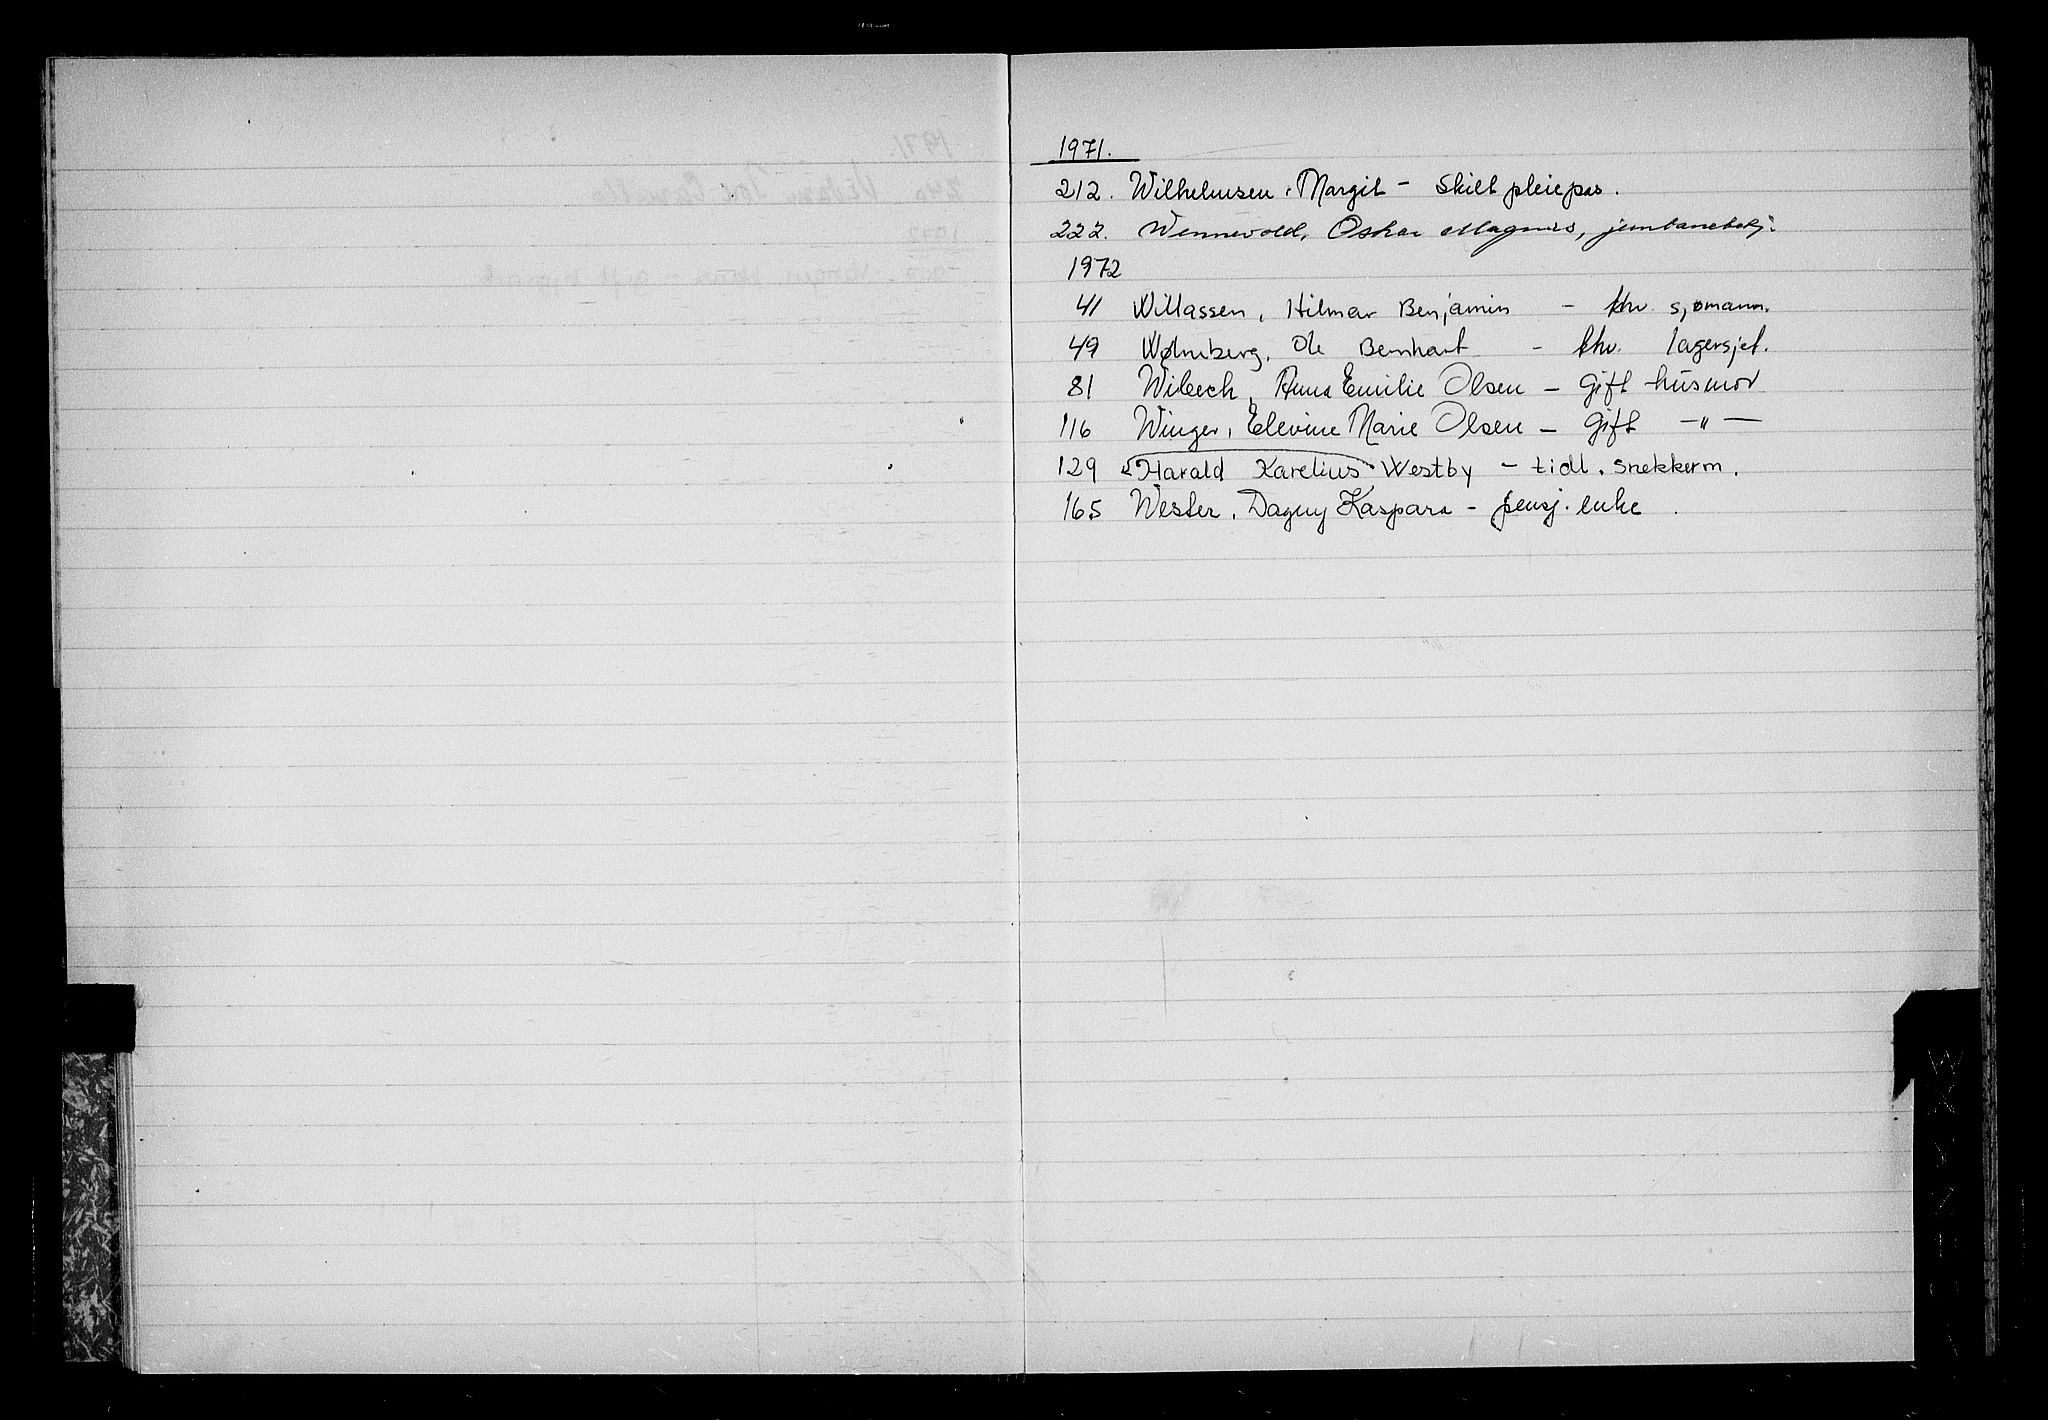 1971.
212. Wilhelmsen, Margit - Skilt pleiepas.
222. Wennevold, Oskar Magnus, jernbanebetj.
1972
41 Willassen, Hilmar Benjamin - fhv. sjømann.
49 Wølneberg, Ole Bernhart - fhv. lagersjef.
81 Wibeck, Anna Emilie Olsen - Gift husmor
116 Winger, Elevine Marie Olsen - Gift -"-
129 Harald Karelius Westby - tidl. snekkerm.
165 Wester, Dagny Kaspara - pensj. enke.